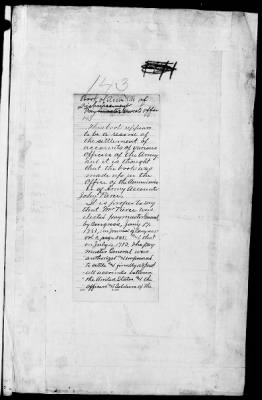 143
Book of Awards of
Paymaster General's office
This book appears
to be a record of the
settlement of
accounts of various
officers of the Army
but it is thought
that the book was
made up in the
Office of the Commissioner
of Army Accounts
Pierce.
It is proper to say
that Mr Pierce was
elected paymaster General
by Congress, Jany 17,
1781,
that
on July 1782, the Pay
Master General was
authorized & empowered
to settle & finally adjust
all accounts between
the United States & the
officers & Soldiers of the